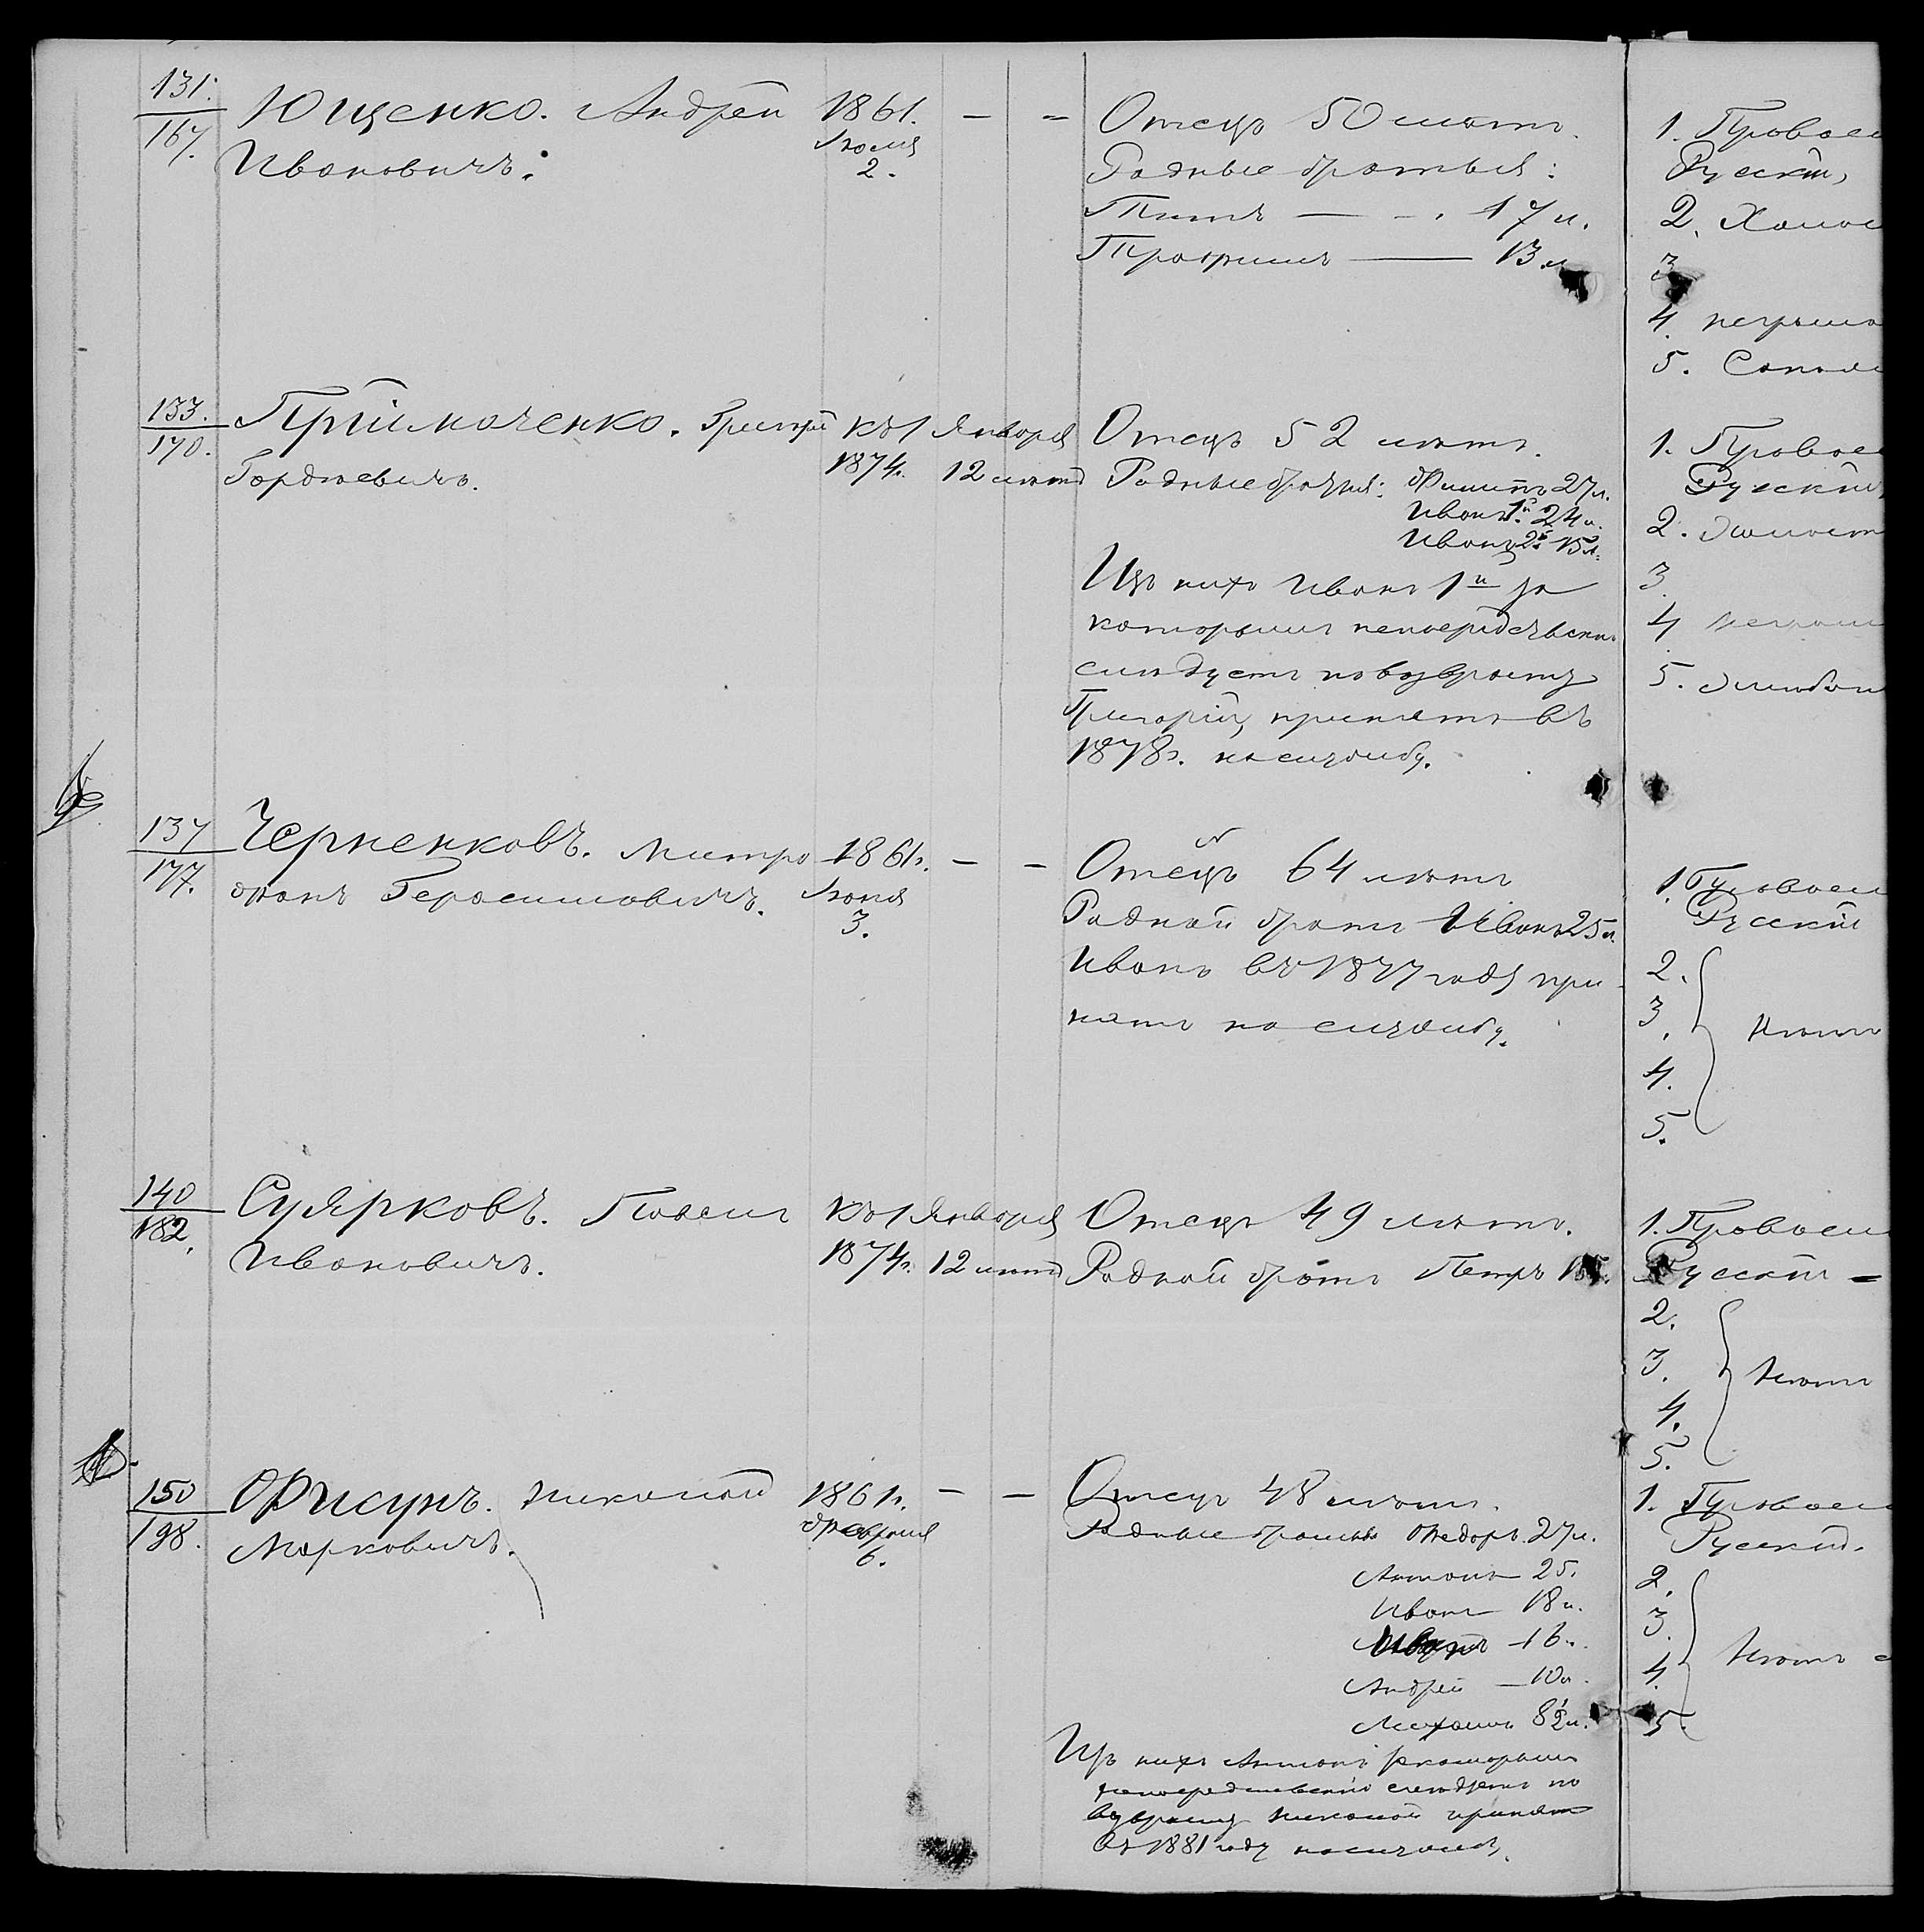 131.
167.
Ющенко. Андрей
Ивановичъ.
1861.
Іюля
2.
— =
Отецъ 50 лѣтъ.
Родные братья:
Титъ — - . 17 л.
Трофимъ — 13 л.
1. Правосл
Русскій,
2. Холос
3
4. неграмо
5.
133.
170.
Прiймаченко. Григорій
Гордѣевичъ.
къ 1 Января
1874. 12 лѣтъ
Отецъ 52 лѣтъ.
Родные братья: Филиппъ 27 л.
Иванъ 1й 24 л.
Иванъ 2й 15 л.
Изъ нихъ Иванъ 1й за
которымъ непосредственно
слѣдуетъ по возврасту
Григорій, принятъ въ
1878 г. на службу.
1. Правосл
Русскій,
2. Холост
3.
4 неграм
5.
137
177.
Черненковъ. Митро
фанъ Герасимовичъ.
1861 г.
Іюня
3.
— —
Отецъ 64 лѣтъ
Родной братъ Иванъ 25 л.
Иванъ въ 1877 году при
нятъ на службу.
1. Правосл
Русскій
2.
3.
Нѣтъ
4.
5.
140
182.
Суярковъ. Павелъ
Ивановичъ.
къ 1 Января
1874 г. 12 лѣтъ
Отецъ 49 лѣтъ.
Родной братъ Петръ
1. Правосл
Русскій =
2.
3.
Нѣтъ
4.
5.
150
198.
Фисунъ. Николай
Марковичъ.
1861 г.
Февраля
6.
— —
Отецъ 48 лѣтъ.
Родные братья Федоръ 27 л.
Антонъ 25.
Иванъ 18 л.
16 л.
Андрей — 10 л.
8½ л.
Изъ нихъ Антонъ за которымъ
непосредственно слѣдуетъ по
возврасту Николай принятъ
въ 1881 году на службу.
1. Правосл
Русскій.
2.
3.
Нѣтъ
4.
5.